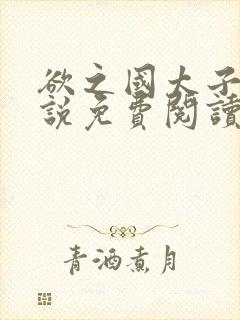 欲之國太子
說免費閱讀
青酒煮月